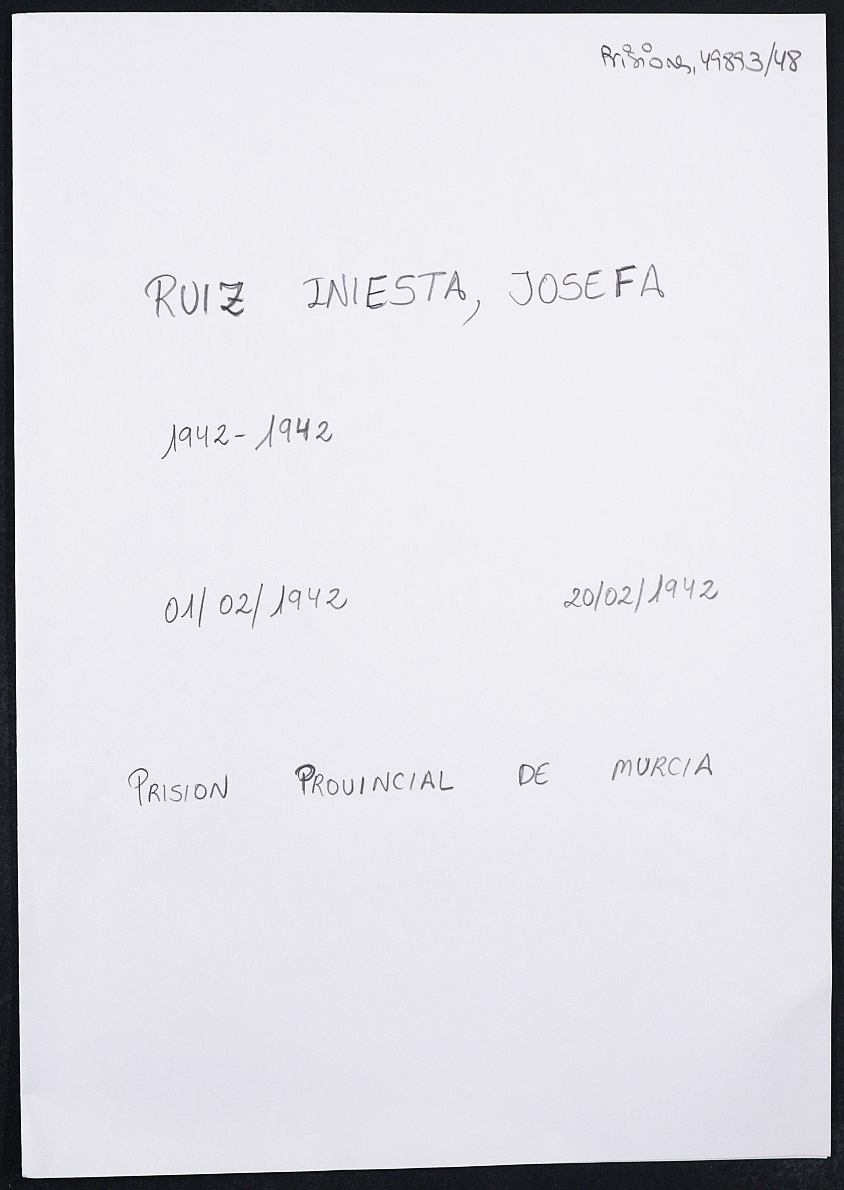 Prisiones, 49893/48
RUIZ INIESTA, JOSEFA
1942-1942
01/02/1942 20/02/1942
PRISION PROVINCIAL DE MURCIA